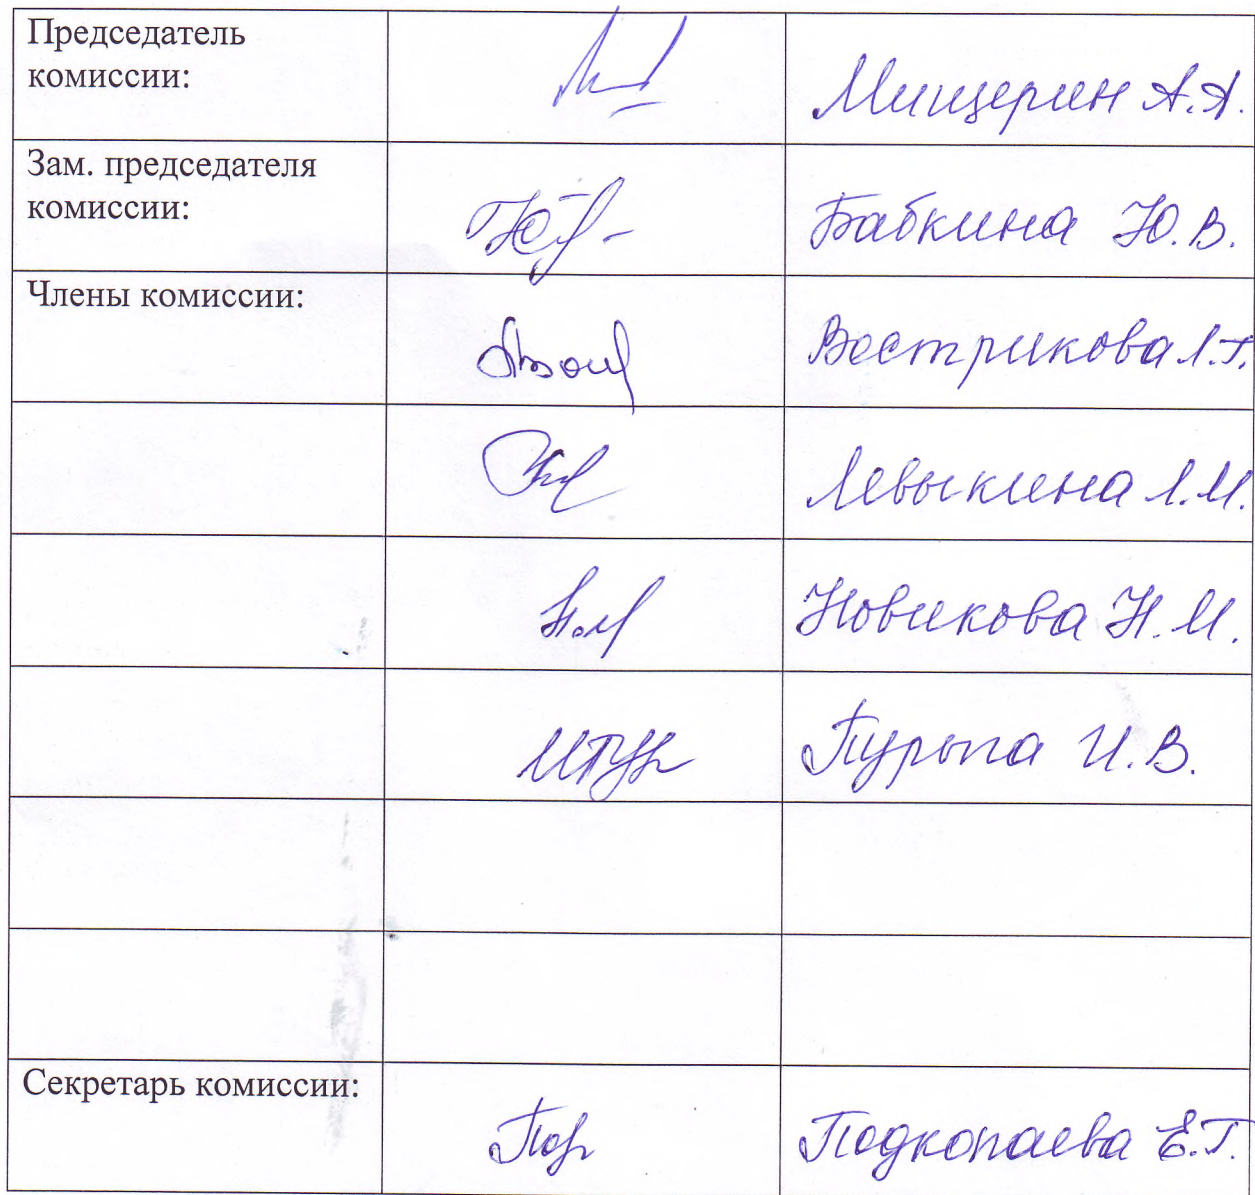 Председатель
комиссии:
Мищерин А.А.
Зам. председателя
комиссии:
Бабкина Ю.В.
Члены комиссии:
Вострикова Л.Г.
Левыкина Л.М.
Новикова Н.М.
И.В.
Секретарь комиссии:
Подкопаева Е.Г.